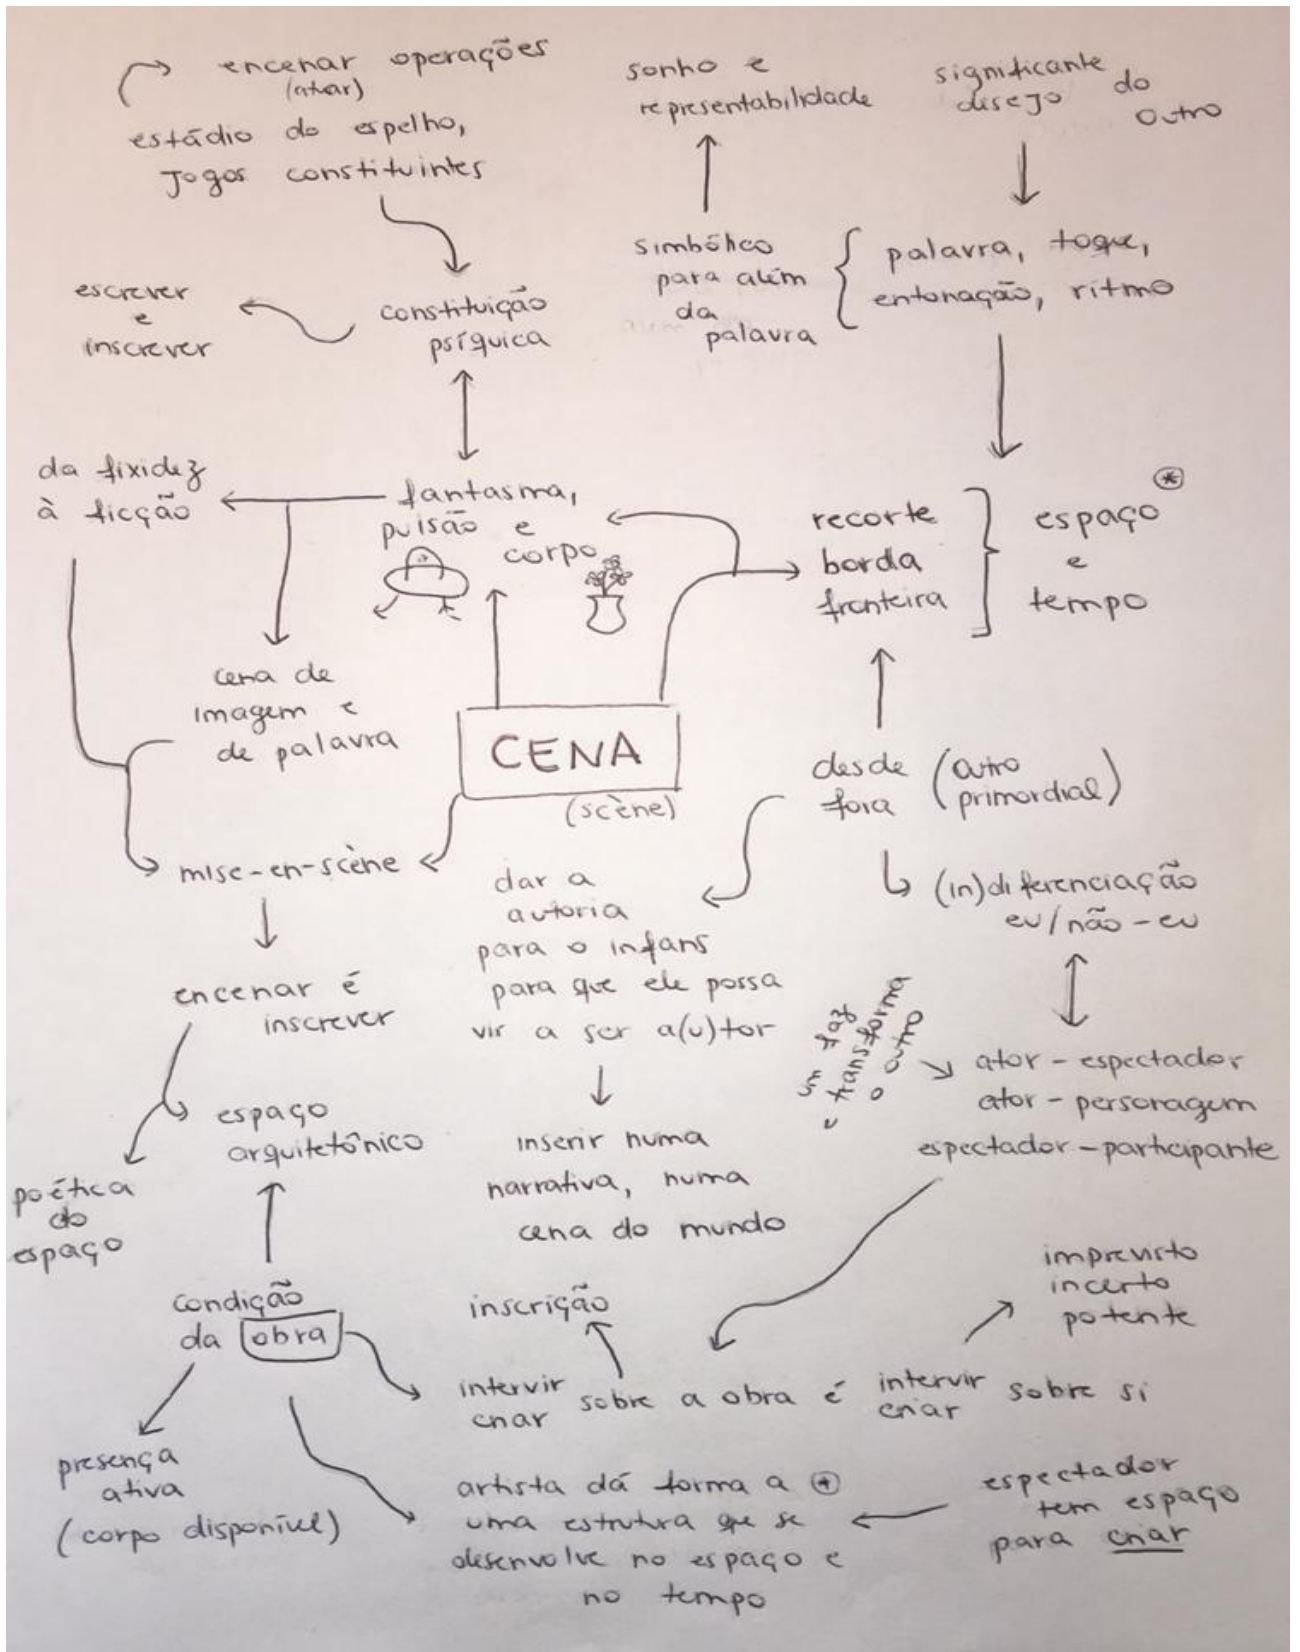 encenar operações
(atuar)
estádio do espelho,
jogos constituintes
sonho e
representabilidade
significante
desejo do
Outro
escrever
e
inscrever
constituição
psíquica
simbólico
para além
da
palavra
palavra, toque,
entonação, ritmo
da fixidez
à ficção
fantasma,
pulsão e
corpo
recorte
borda
fronteira
espaço *
e
tempo
cena de
imagem e
de palavra
CENA
(scène)
desde
fora
(outro
primordial)
mise-en-scène
dar a
autoria
para o infans
para que ele possa
vir a ser a(u)tor
(in)diferenciação
eu/não-eu
encenar é
inscrever
um faz
e transforma
o outro
ator - espectador
ator - personagem
espectador - participante
espaço
arquitetônico
poética
do
espaço
inserir numa
narrativa, numa
cena do mundo
imprevisto
incerto
potente
condição
da obra
inscrição
intervir
criar
sobre a obra é
intervir
criar
sobre si
presença
ativa
(corpo disponível)
artista dá forma a *
uma estrutura que se
desenvolve no espaço e
no tempo
espectador
tem espaço
para criar